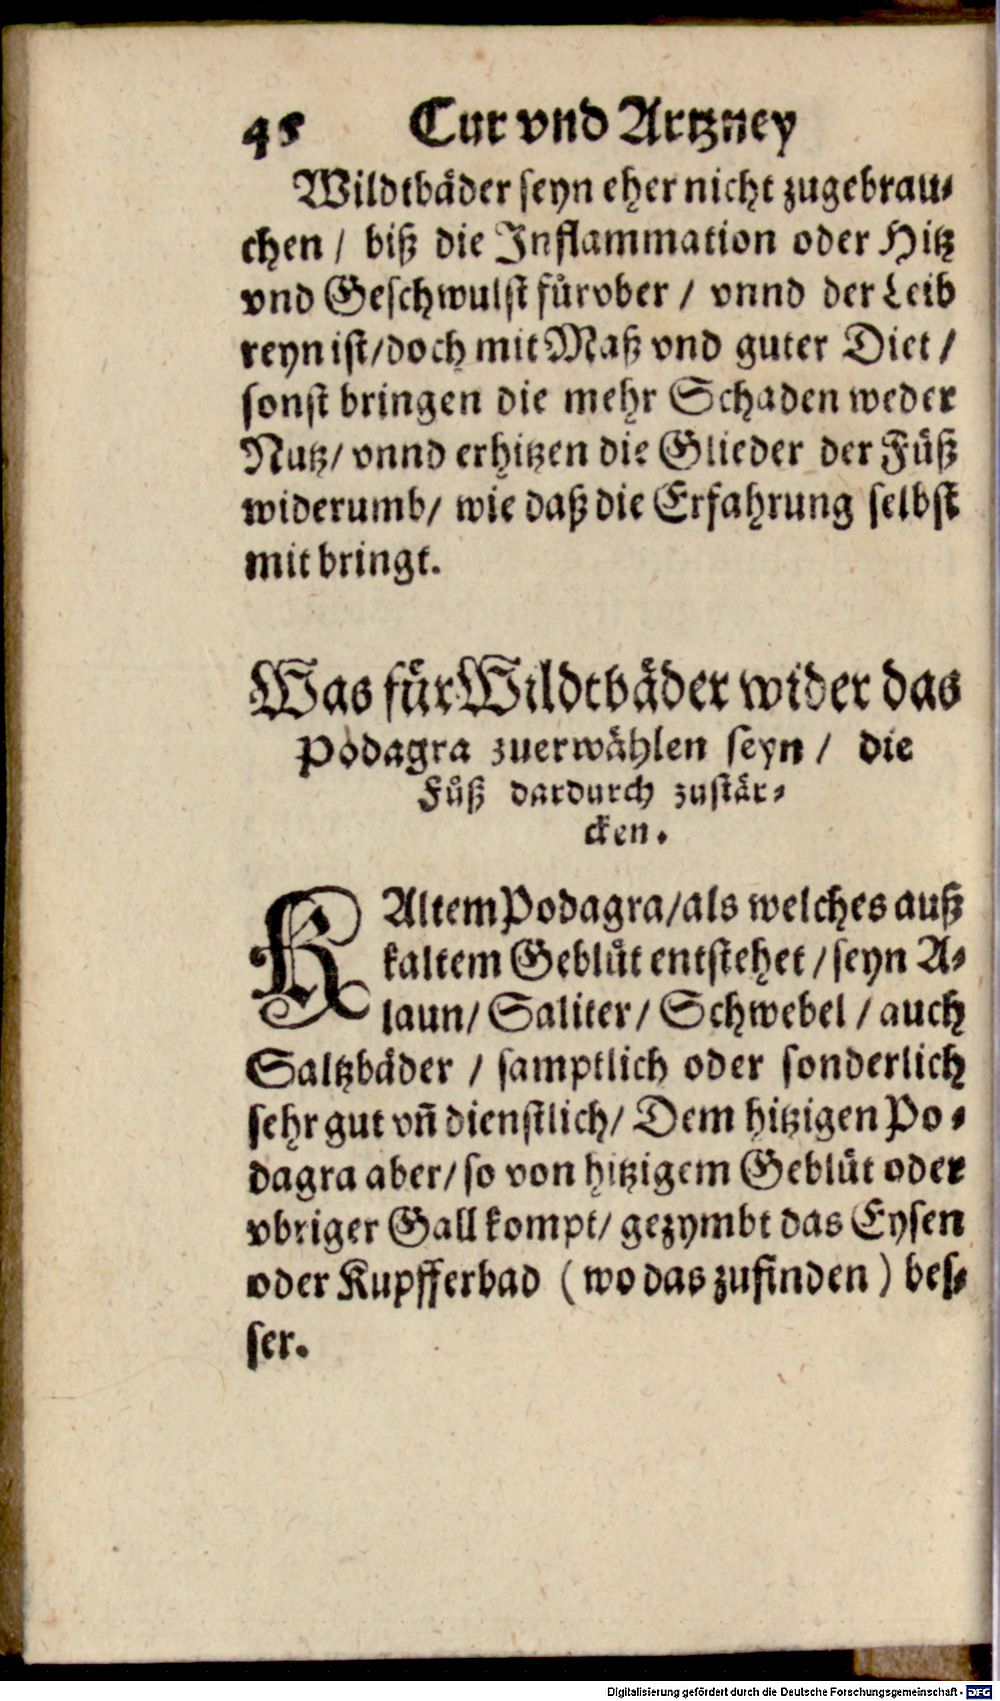 48 Cur vnd Artzney
Wildtbäder seyn eher nicht zugebrau-
chen / biß die Inflammation oder Hitz
vnd Geschwulst fürvber / vnnd der Leib
reyn ist/doch mit Maß vnd guter Diet /
sonst bringen die mehr Schaden weder
Nutz/ vnnd erhitzen die Glieder der Füß
widerumb/ wie daß die Erfahrung selbst
mit bringt.
Was für Wildtbäder wider das
Podagra zuerwählen seyn / die
Füß dardurch zustär-
cken.
KAltem Podagra/als welches auß
kaltem Geblüt entstehet / seyn A-
laun/ Saliter/ Schwebel / auch
Saltzbäder / samptlich oder sonderlich
sehr gut vn̄ dienstlich/ Dem hitzigen Po-
dagra aber/ so von hitzigem Geblüt oder
vbriger Gall kompt/ gezymbt das Eysen
oder Kupfferbad (wo das zufinden) bes-
ser.
Digitalisierung gefördert durch die Deutsche Forschungsgemeinschaft - DFG